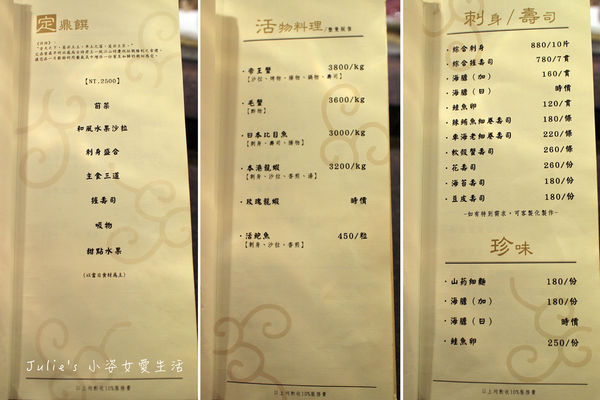 定 鼎饌
【NT.2500】
前菜
和風水果沙拉
刺身盛合
主食三道
握壽司
吸物
甜點水果
(以當日食材為主)
Julie's 小姿女愛生活
以上均酌收10%服務費
活物料理/整隻販售
·帝王蟹 3800/kg
【沙拉、烤物、揚物、鍋物、壽司】
·毛蟹 3600/kg
·日本比目魚 3000/kg
【刺身、壽司、揚物】
·本港龍蝦 3200/kg
【刺身、沙拉、香煎、湯】
·玫瑰龍蝦 時價
·活鮑魚 450/粒
【刺身、沙拉、香煎】
以上均酌收10%服務費
刺身/壽司
·綜合刺身 880/10片
·綜合握壽司 780/7貫
·海膽(加) 160/貫
·海膽(日) 時價
·鮭魚卵 120/貫
·辣鮪魚細卷壽司 180/條
·車海老細卷壽司 220/條
·軟殼蟹壽司 260/條
·花壽司 260/份
·海苔壽司 180/份
·豆皮壽司 180/份
-如有特別需求,可客製化製作-
珍味
·山药細麵 180/份
·海膽(加) 180/份
·海膽(日) 時價
·鮭魚卵 250/份
以上均酌收10%服務費